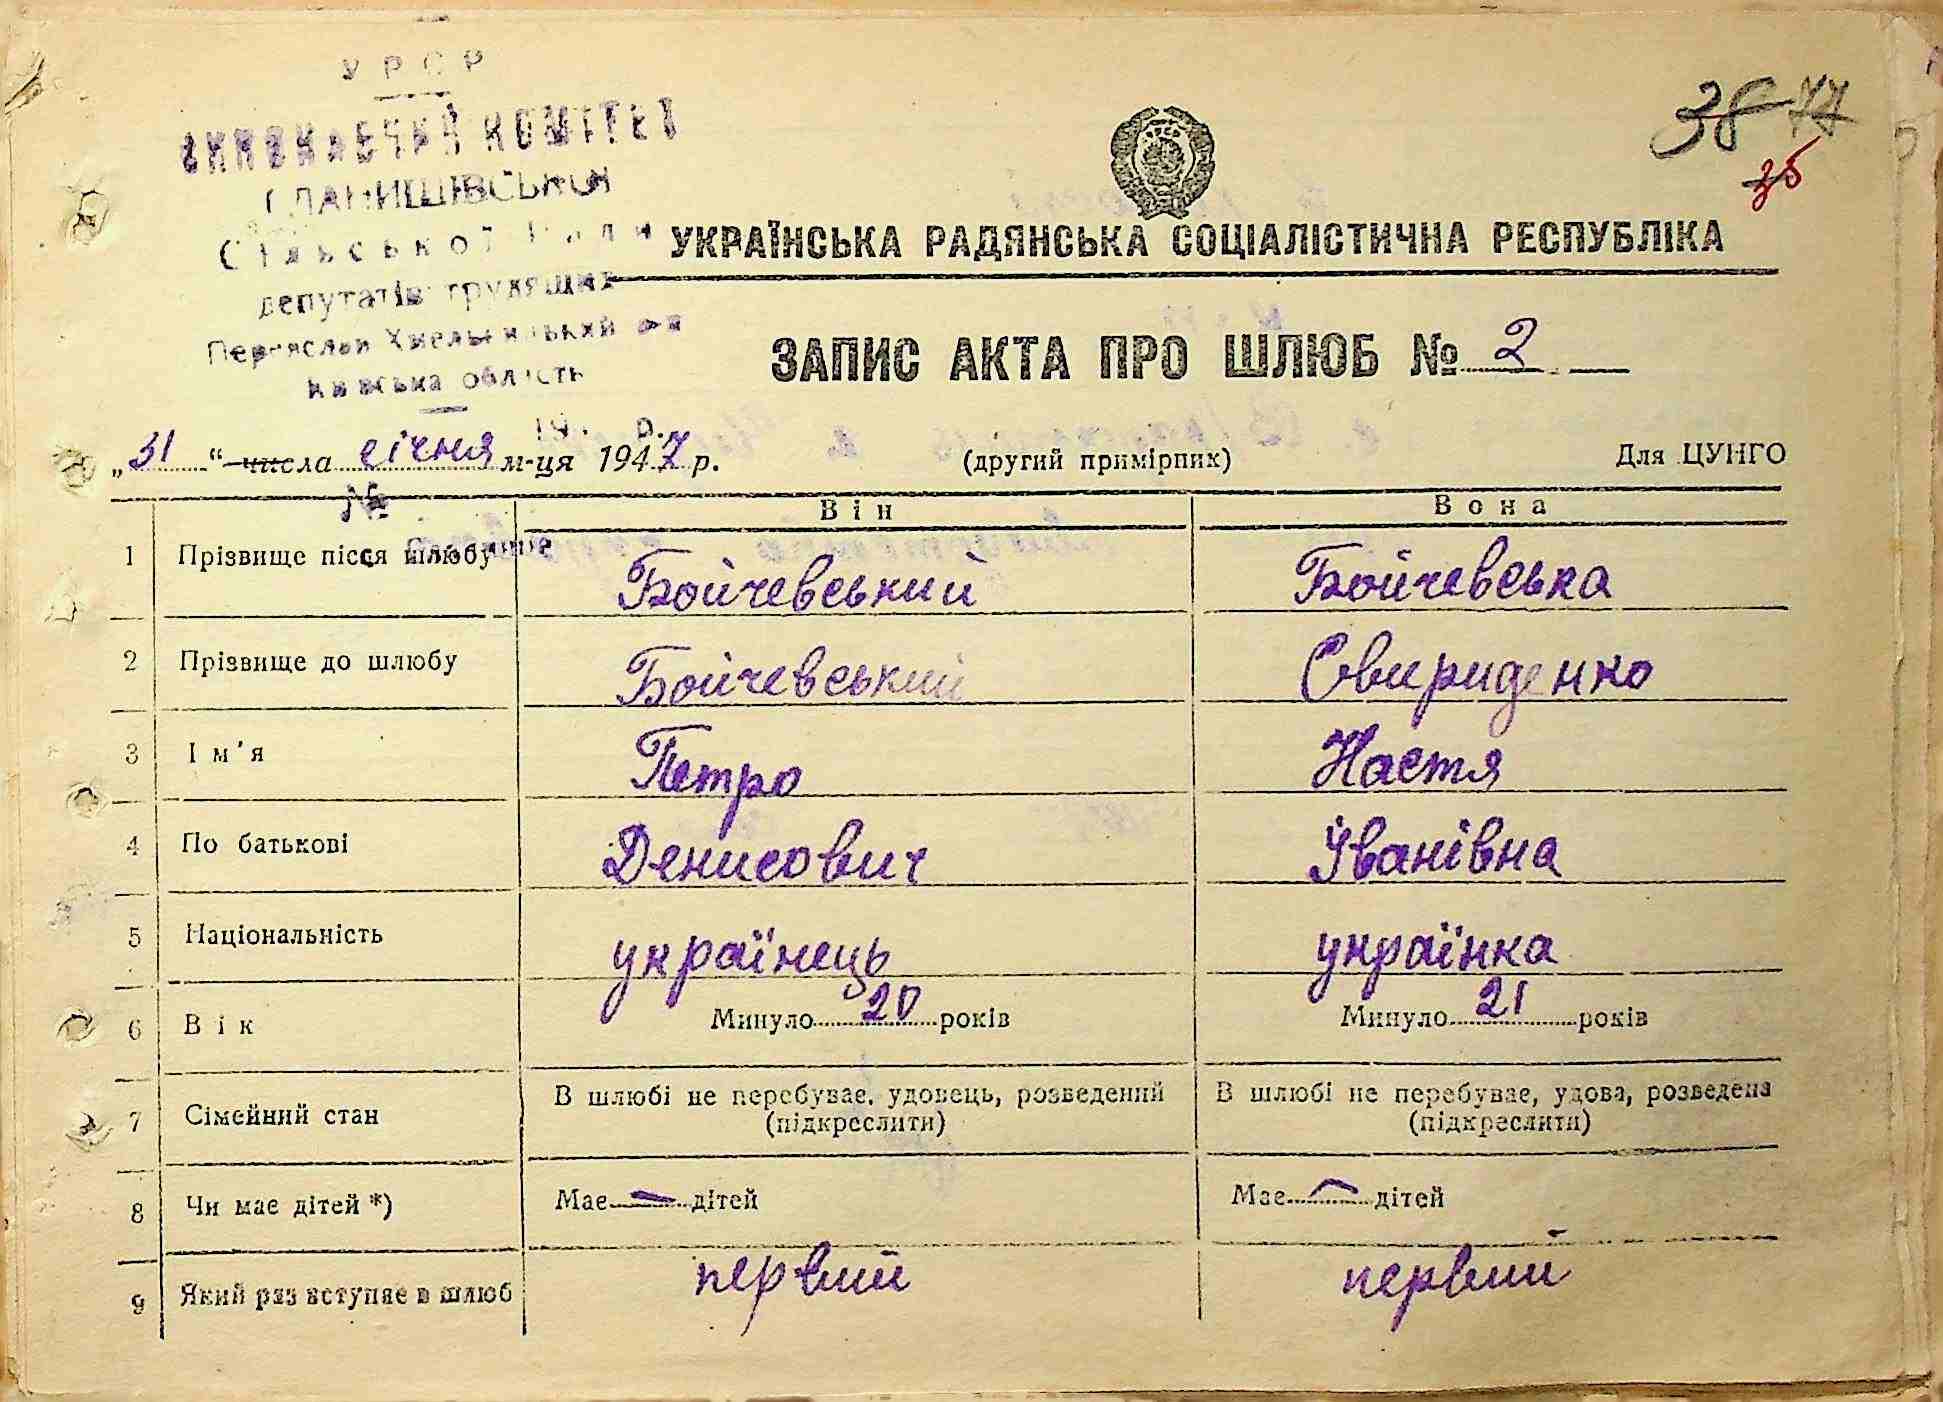 УРСР
ВИКОНАВЧИЙ КОМІТЕТ
ГЛАНИШІВСЬКОЇ
Сільської Ради
депутатів трудящих
Переяслав Хмельницький р-н
Київська область
38 77
35
УКРАЇНСЬКА РАДЯНСЬКА СОЦІАЛІСТИЧНА РЕСПУБЛІКА
ЗАПИС АКТА ПРО ШЛЮБ № 2
19 р.
„31“ числа січня м-ця 1947 р. (другий примірник) Для ЦУНГО
№
Він Вона
1 Прізвище після шлюбу Бойчевський Бойчевська
2 Прізвище до шлюбу Бойчевський Свириденко
3 Ім'я Петро Настя
4 По батькові Денисович Іванівна
5 Національність українець українка
6 Вік Минуло 20 років Минуло 21 років
7 Сімейний стан В шлюбі не перебуває, удовець, розведений (підкреслити) В шлюбі не перебуває, удова, розведена (підкреслити)
8 Чи має дітей *) Має — дітей Має — дітей
9 Який раз вступає в шлюб первий первий